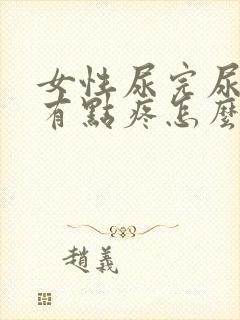 女性尿完尿
有點疼怎麼
趙義